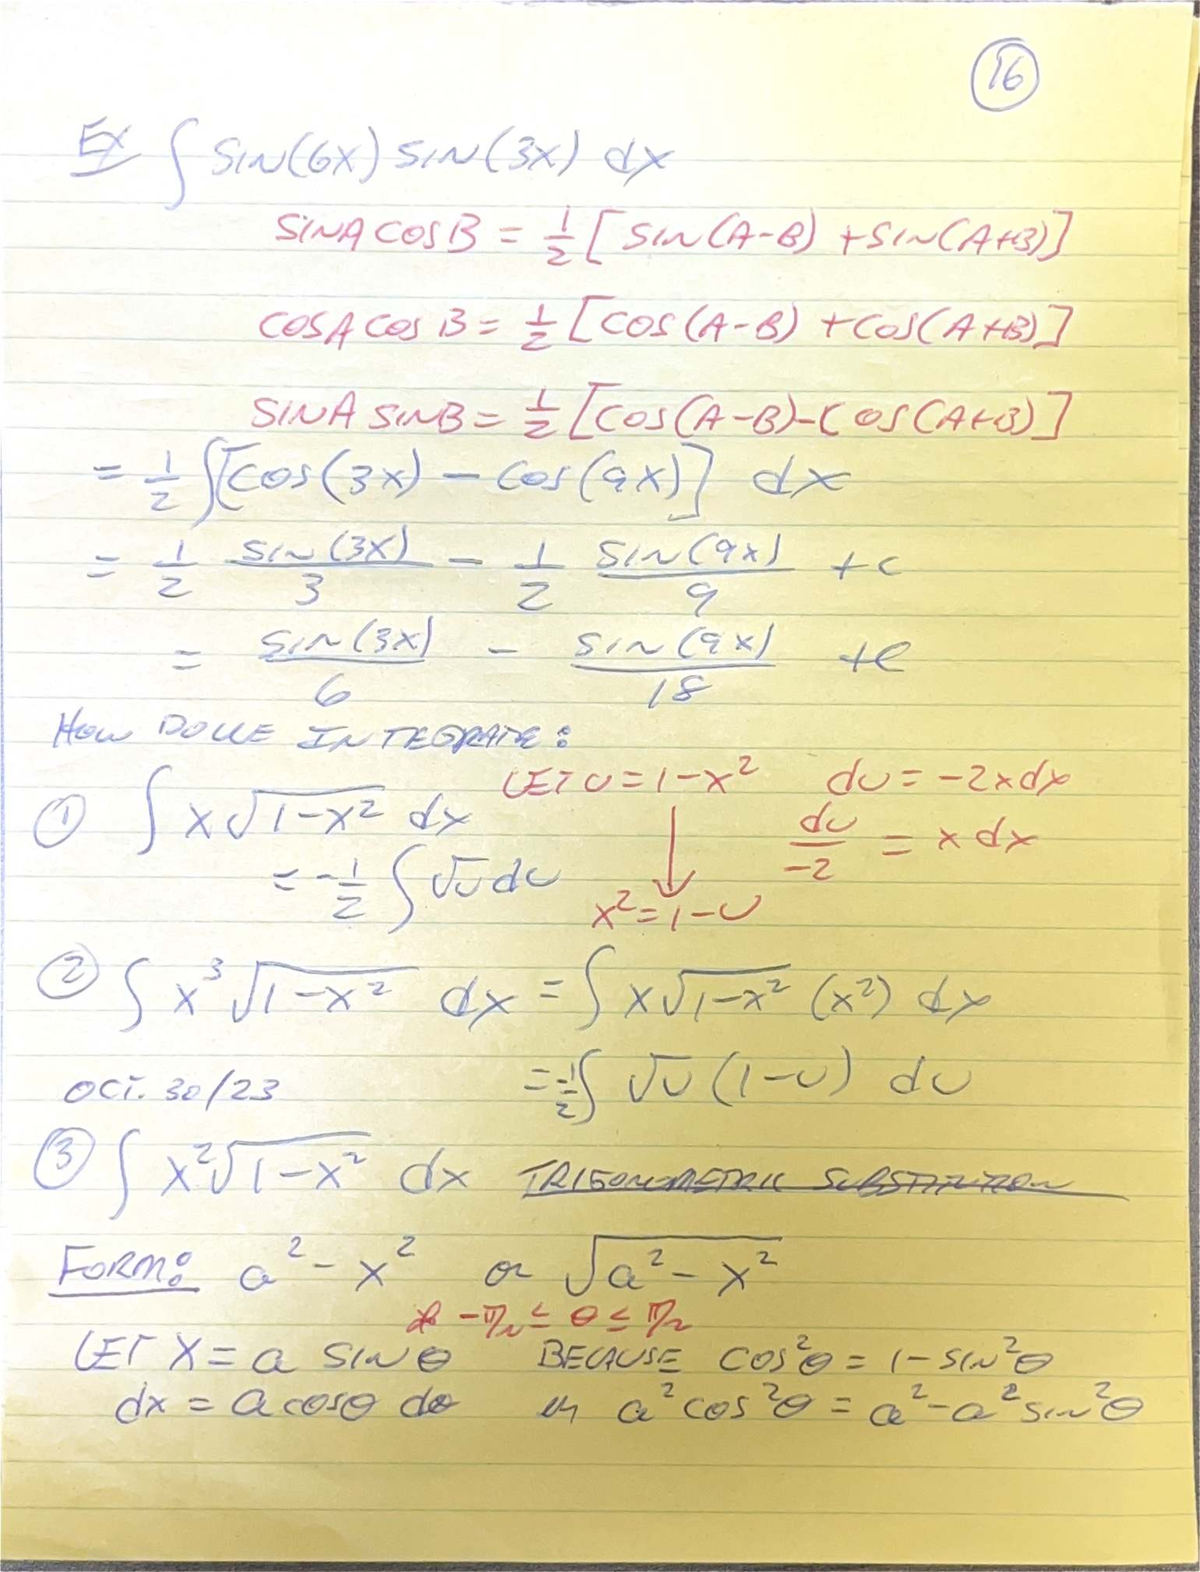 16
Ex ∫ sin(6x) sin(3x) dx
sinA cosB = 1/2 [sin(A-B) + sin(A+B)]
cosA cosB = 1/2 [cos(A-B) + cos(A+B)]
sinA sinB = 1/2 [cos(A-B) - cos(A+B)]
= 1/2 ∫[cos(3x) - cos(9x)] dx
= 1/2 sin(3x)/3 - 1/2 sin(9x)/9 + c
= sin(3x)/6 - sin(9x)/18 + c
HOW DO WE INTEGRATE:
① ∫ x√(1-x²) dx LET u = 1-x² du = -2x dx
= -1/2 ∫ √u du ↓ du/-2 = x dx
x² = 1-u
② ∫ x³√(1-x²) dx = ∫ x√(1-x²) (x²) dx
= -1/2 ∫ √u (1-u) du
OCT. 30/23
③ ∫ x²√(1-x²) dx TRIGONOMETRIC SUBSTITUTION
FORM: a² - x² or √(a² - x²)
* -π/2 ≤ θ ≤ π/2
LET x = a sinθ BECAUSE cos²θ = 1 - sin²θ
dx = a cosθ dθ or a² cos²θ = a² - a² sin²θ